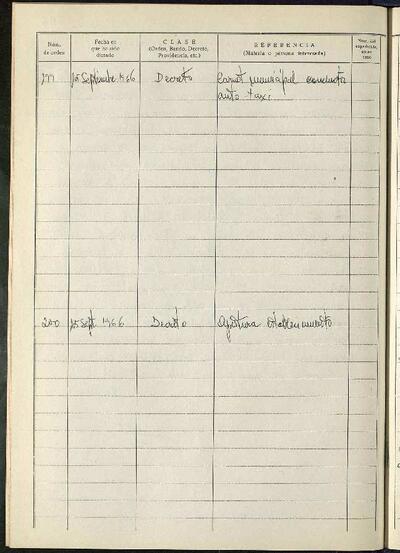 Núm. de orden
Fecha en que ha sido dictado
CLASE
(Orden, Bando, Decreto, Providencia, etc.)
REFERENCIA
(Materia o persona interesada)
Sepbre 1966 Decreto Carnet municipal conductor
auto taxi
200 25 Sept 1966 Decreto Apertura establecimiento